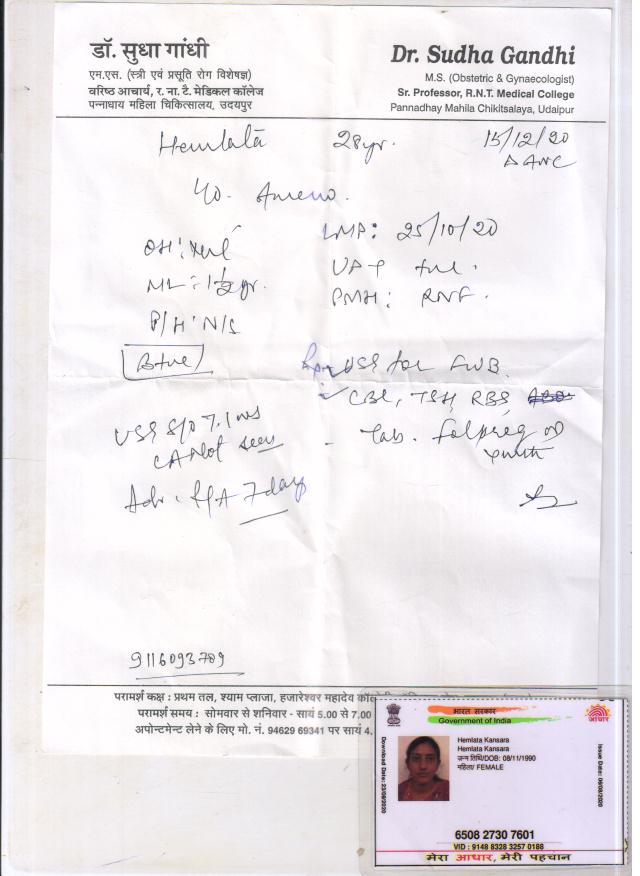 डॉ. सुधा गांधी
एम.एस. (स्त्री एवं प्रसूति रोग विशेषज्ञ)
वरिष्ठ आचार्य, र. ना. टै. मेडिकल कॉलेज
पन्नाधाय महिला चिकित्सालय, उदयपुर
Dr. Sudha Gandhi
M.S. (Obstetric & Gynaecologist)
Sr. Professor, R.N.T. Medical College
Pannadhay Mahila Chikitsalaya, Udaipur
Hemlata 28yr. 15/12/20
ANC
LMP: 25/10/20
OH:
UPT +ve.
ML: 1½yr.
PMH: RNF.
P/H: N/S
B+ve
USG for FWB.
CBC, TSH, RBS
USG S/O 7.1 ws
Tab. Folpreg OD
CA Not seen
Adv: 7 day
9116093789
परामर्श कक्ष : प्रथम तल, श्याम प्लाजा, हजारेश्वर महादेव
परामर्श समय : सोमवार से शनिवार - सायं 5.00 से 7.00
अपोन्टमेन्ट लेने के लिए मो. नं. 94629 69341 पर सायं 4.
भारत सरकार
Government of India
आधार
Download Date: 23/08/2020
Hemlata Kansara
Hemlata Kansara
जन्म तिथि/DOB: 08/11/1990
महिला/ FEMALE
6508 2730 7601
VID : 9148 8328 3257 0188
मेरा आधार, मेरी पहचान